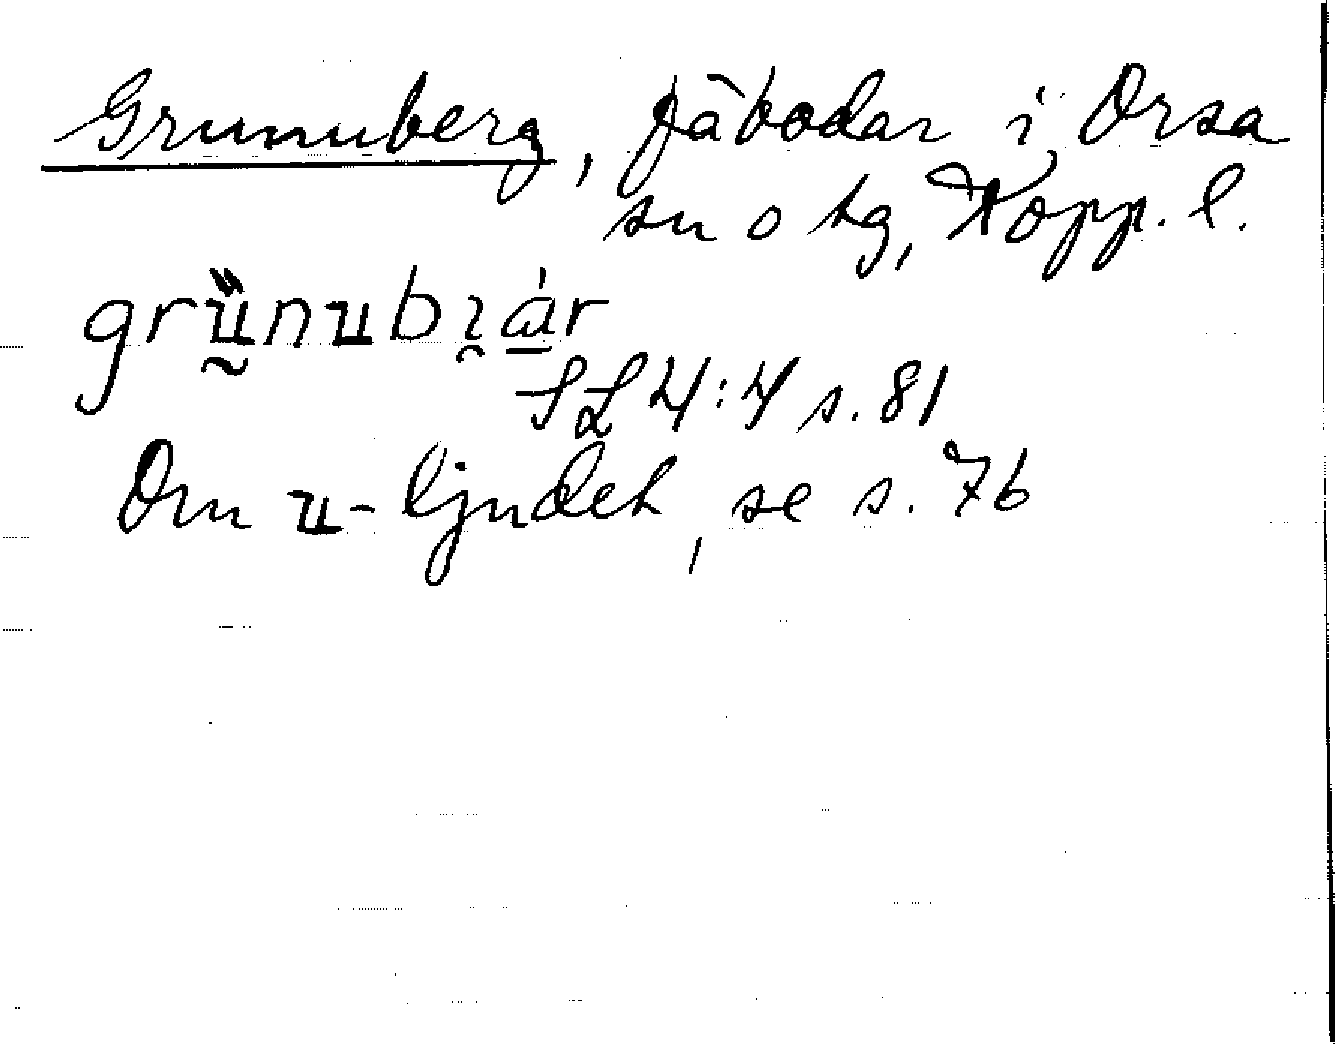 Grunuberg, fäbodar i Orsa
sn o tg, Kopp. l.
SL 4:4 s. 81
Om u-ljudet, se s. 76